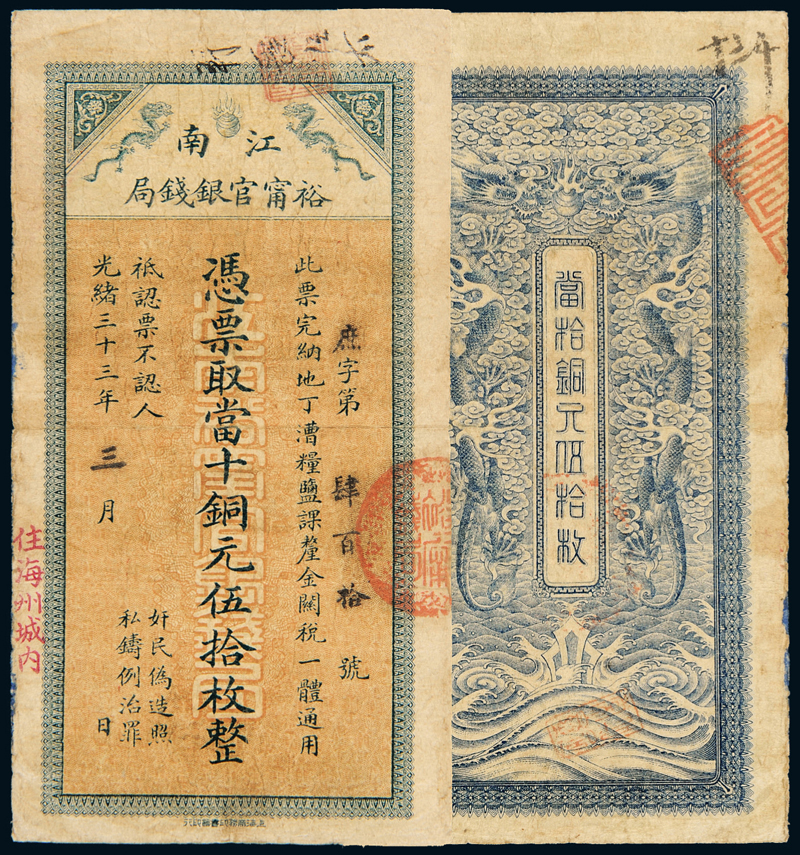 江南
裕甯官銀錢局
庶字第肆百拾號
此票完納地丁漕糧鹽課釐金關稅一體通用
憑票取當十銅元伍拾枚整
祗認票不認人
奸民偽造照
私鑄例治罪
光緒三十三年三月日
住海州城內
當拾銅元伍拾枚